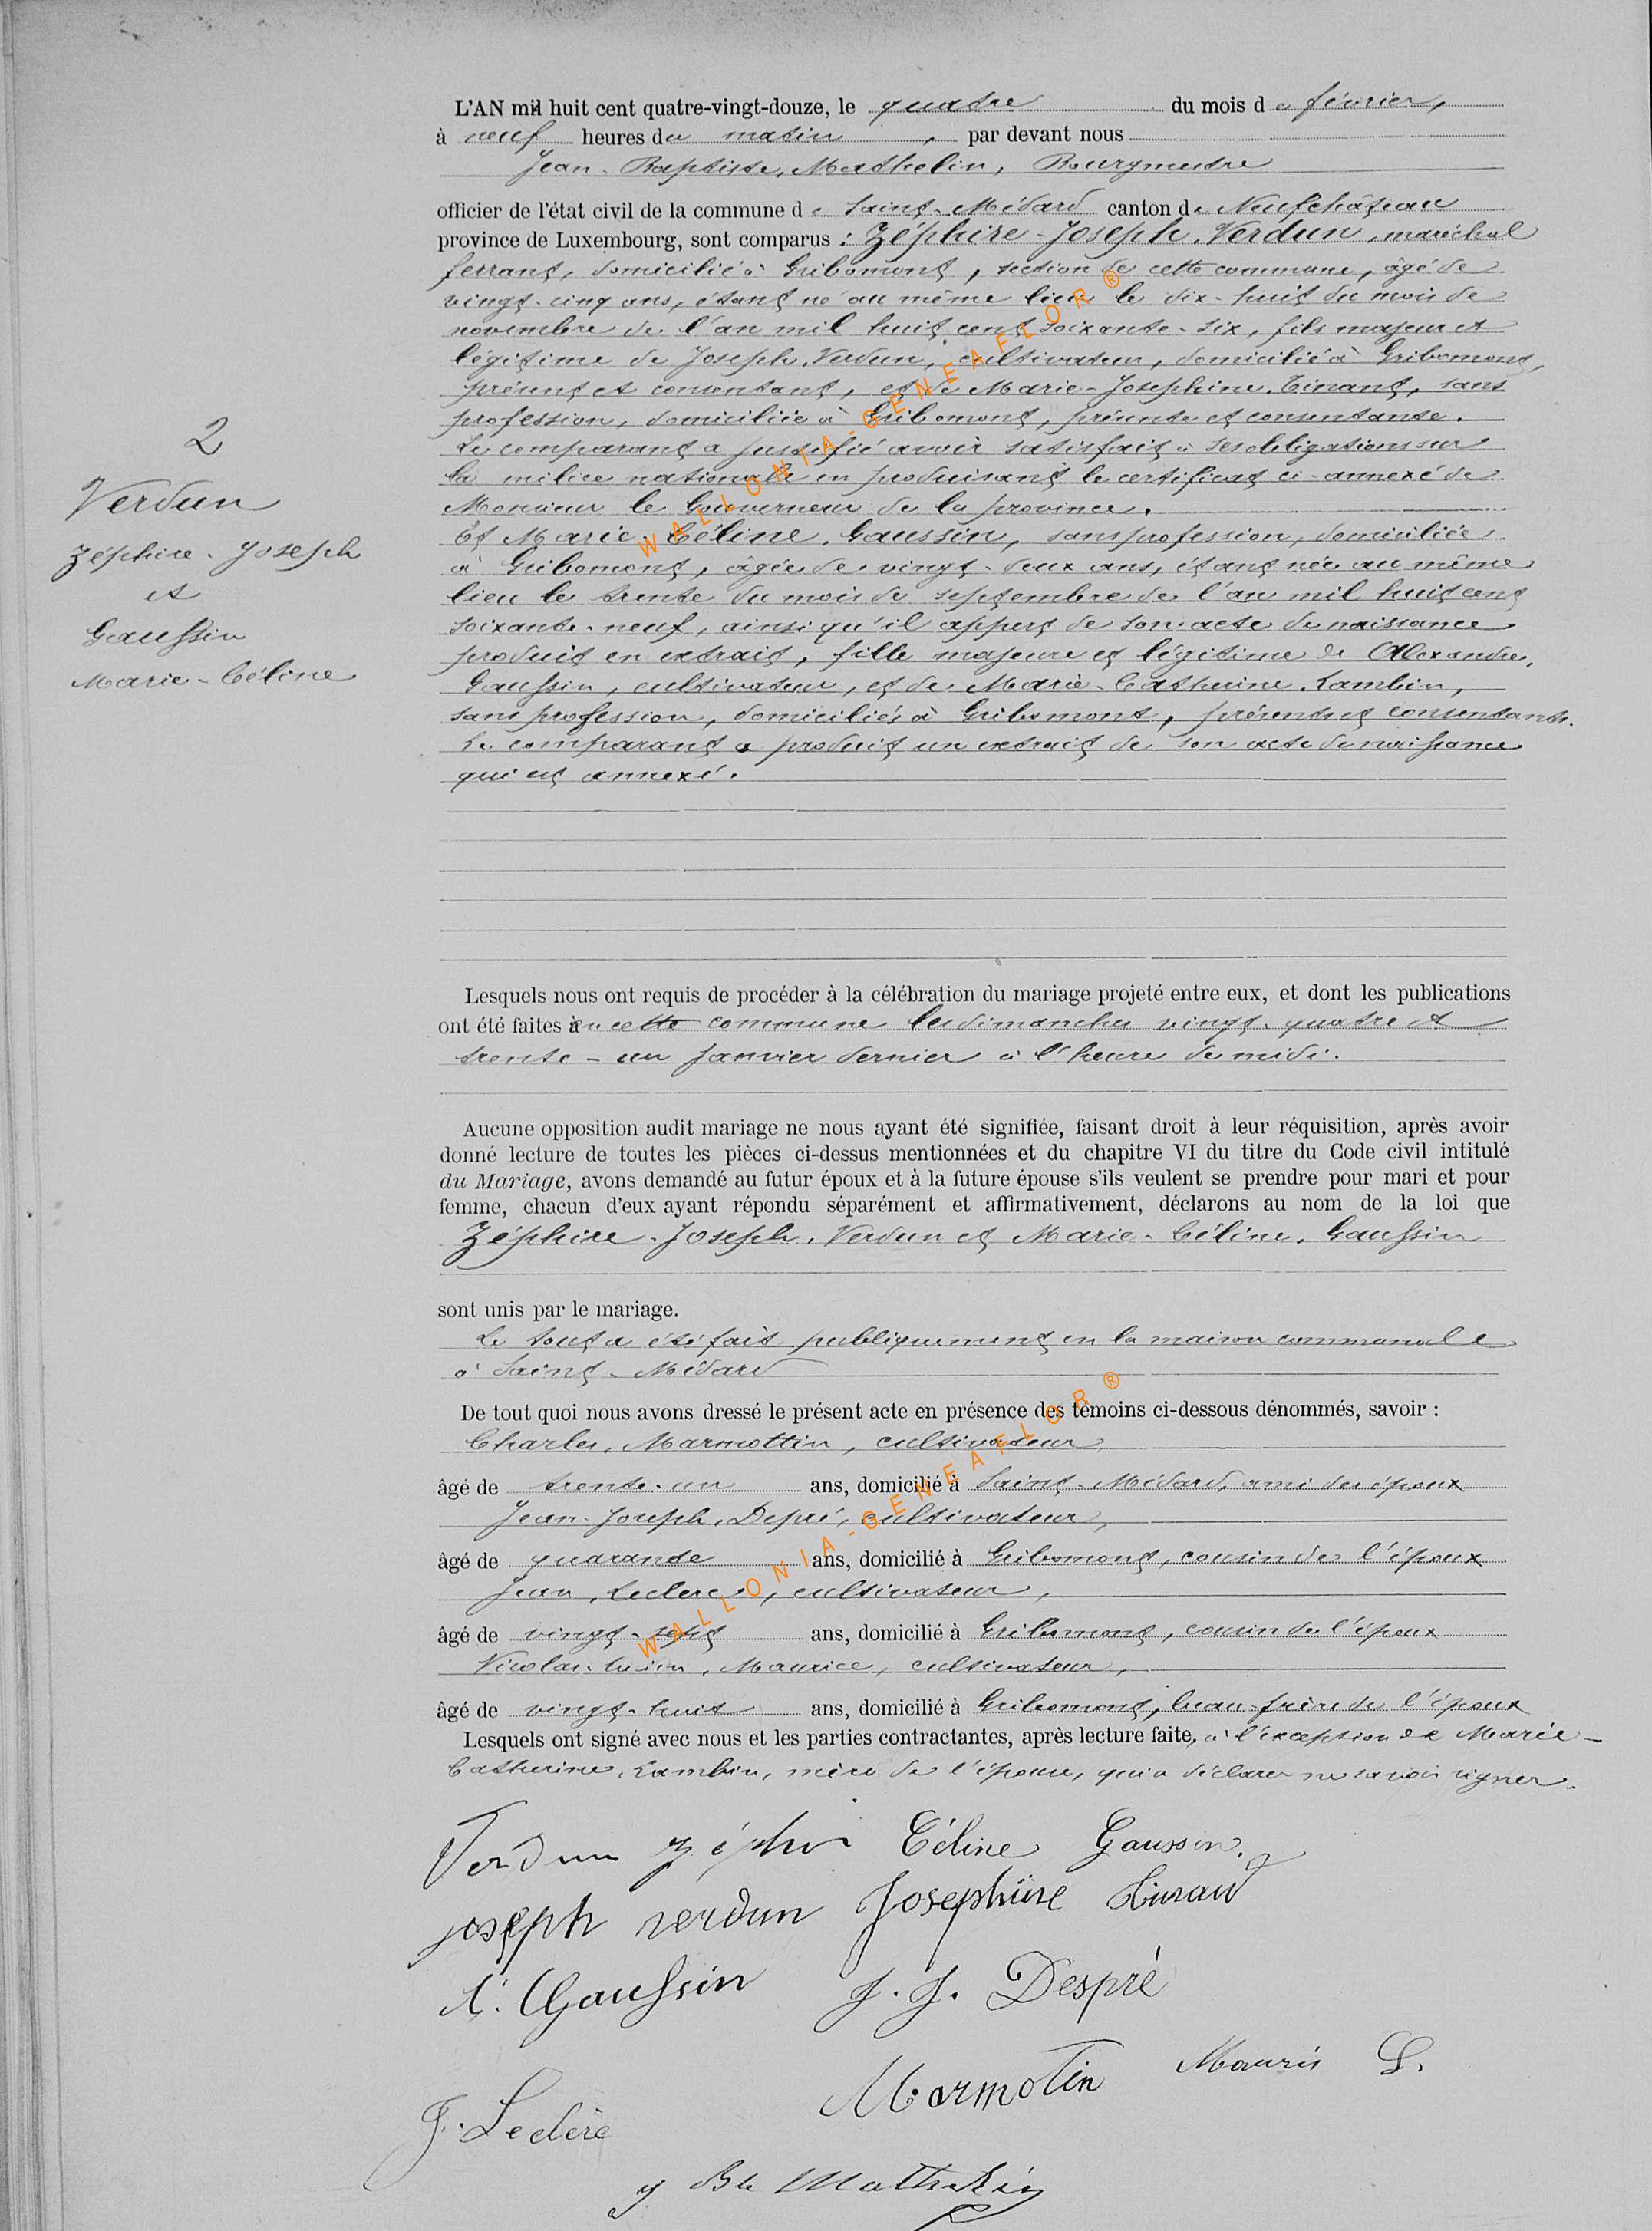 L'AN mil huit cent quatre-vingt-douze, le quatre du mois de février,
à neuf heures du matin, par devant nous
Jean-Baptiste, Mathelin, Bourgmestre
officier de l'état civil de la commune de Saint-Médard canton de Neufchâteau
province de Luxembourg, sont comparus : Zéphire-Joseph, Verdun, maréchal
ferrant, domicilié à Gribomont, section de cette commune, âgé de
vingt-cinq ans, étant né au même lieu le dix-huit du mois de
novembre de l'an mil huit cent soixante-six, fils majeur et
légitime de Joseph, Verdun, cultivateur, domicilié à Gribomont,
présent et consentant, et de Marie-Josephine, Tinant, sans
profession, domiciliée à Gribomont, présente et consentante.
Le comparant a justifié avoir satisfait à ses obligations sur
la milice nationale en produisant le certificat ci-annexé de
Monsieur le Gouverneur de la province.
Et Marie-Céline, Gaussin, sans profession, domiciliée
à Gribomont, âgée de vingt-deux ans, étant née au même
lieu le trente du mois de septembre de l'an mil huit cent
soixante-neuf, ainsi qu'il appert de son acte de naissance
produit en extrait, fille majeure et légitime de Alexandre,
Gaussin, cultivateur, et de Marie-Catherine, Lambin,
sans profession, domiciliés à Gribomont, présents et consentants.
Le comparant a produit un extrait de son acte de naissance
qui est annexé.
2
Verdun
Zéphire-Joseph
et
Gaussin
Marie-Céline
Lesquels nous ont requis de procéder à la célébration du mariage projeté entre eux, et dont les publications
ont été faites en cette commune les dimanches vingt-quatre et
trente-un janvier dernier à l'heure de midi.
Aucune opposition audit mariage ne nous ayant été signifiée, faisant droit à leur réquisition, après avoir
donné lecture de toutes les pièces ci-dessus mentionnées et du chapitre VI du titre du Code civil intitulé
du Mariage, avons demandé au futur époux et à la future épouse s'ils veulent se prendre pour mari et pour
femme, chacun d'eux ayant répondu séparément et affirmativement, déclarons au nom de la loi que
Zéphire-Joseph, Verdun et Marie-Céline, Gaussin
sont unis par le mariage.
Le tout a été fait publiquement en la maison communale
à Saint-Médard
De tout quoi nous avons dressé le présent acte en présence des témoins ci-dessous dénommés, savoir :
Charles, Marmottin, cultivateur
âgé de trente-un ans, domicilié à Saint-Médard, ami des époux
Jean-Joseph, Depré, cultivateur,
âgé de quarante ans, domicilié à Gribomont, cousin de l'époux
Jean, Leclere, cultivateur,
âgé de vingt-sept ans, domicilié à Gribomont, cousin de l'époux
Nicolas-Lucien, Maurice, cultivateur,
âgé de vingt-huit ans, domicilié à Gribomont, beau-frère de l'époux
Lesquels ont signé avec nous et les parties contractantes, après lecture faite, à l'exception de Marie-
Catherine, Lambin, mère de l'épouse, qui a déclaré ne savoir signer.
Verdun Zéphir Céline Gaussin.
joseph verdun Josephine Tinant
A. Gaussin J. J. Despré
Marmotin Mauris L.
J. Leclère
J Bte Mathelin
WALLONIA-GENEAFLOR ®
WALLONIA-GENEAFLOR ®